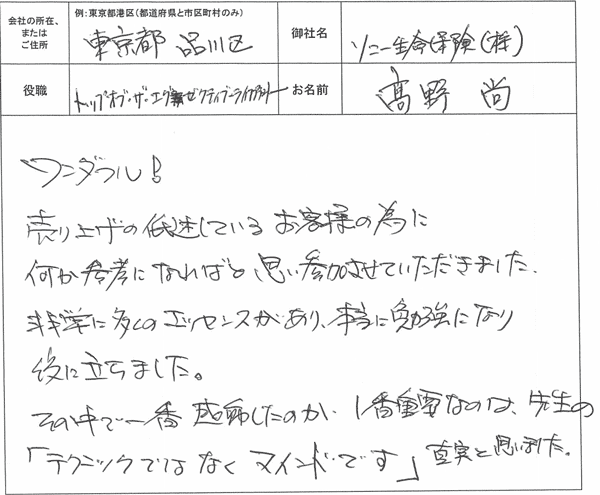 会社の所在、
または
ご住所
例:東京都港区(都道府県と市区町村のみ)
東京都 品川区
御社名
ソニー生命保険(株)
役職
トップ・オブ・ザ・エグゼクティブ・ライフプランナー
お名前
髙野 尚
ワンダフル!
売り上げの低迷しているお客様の為に
何か参考になればと思い参加させていただきました.
非常に多くのエッセンスがあり、本当に勉強になり
役に立ちました。
その中で一番感動したのが、1番重要なのは、先生の
「テクニックではなくマインドです」真実と思いました。